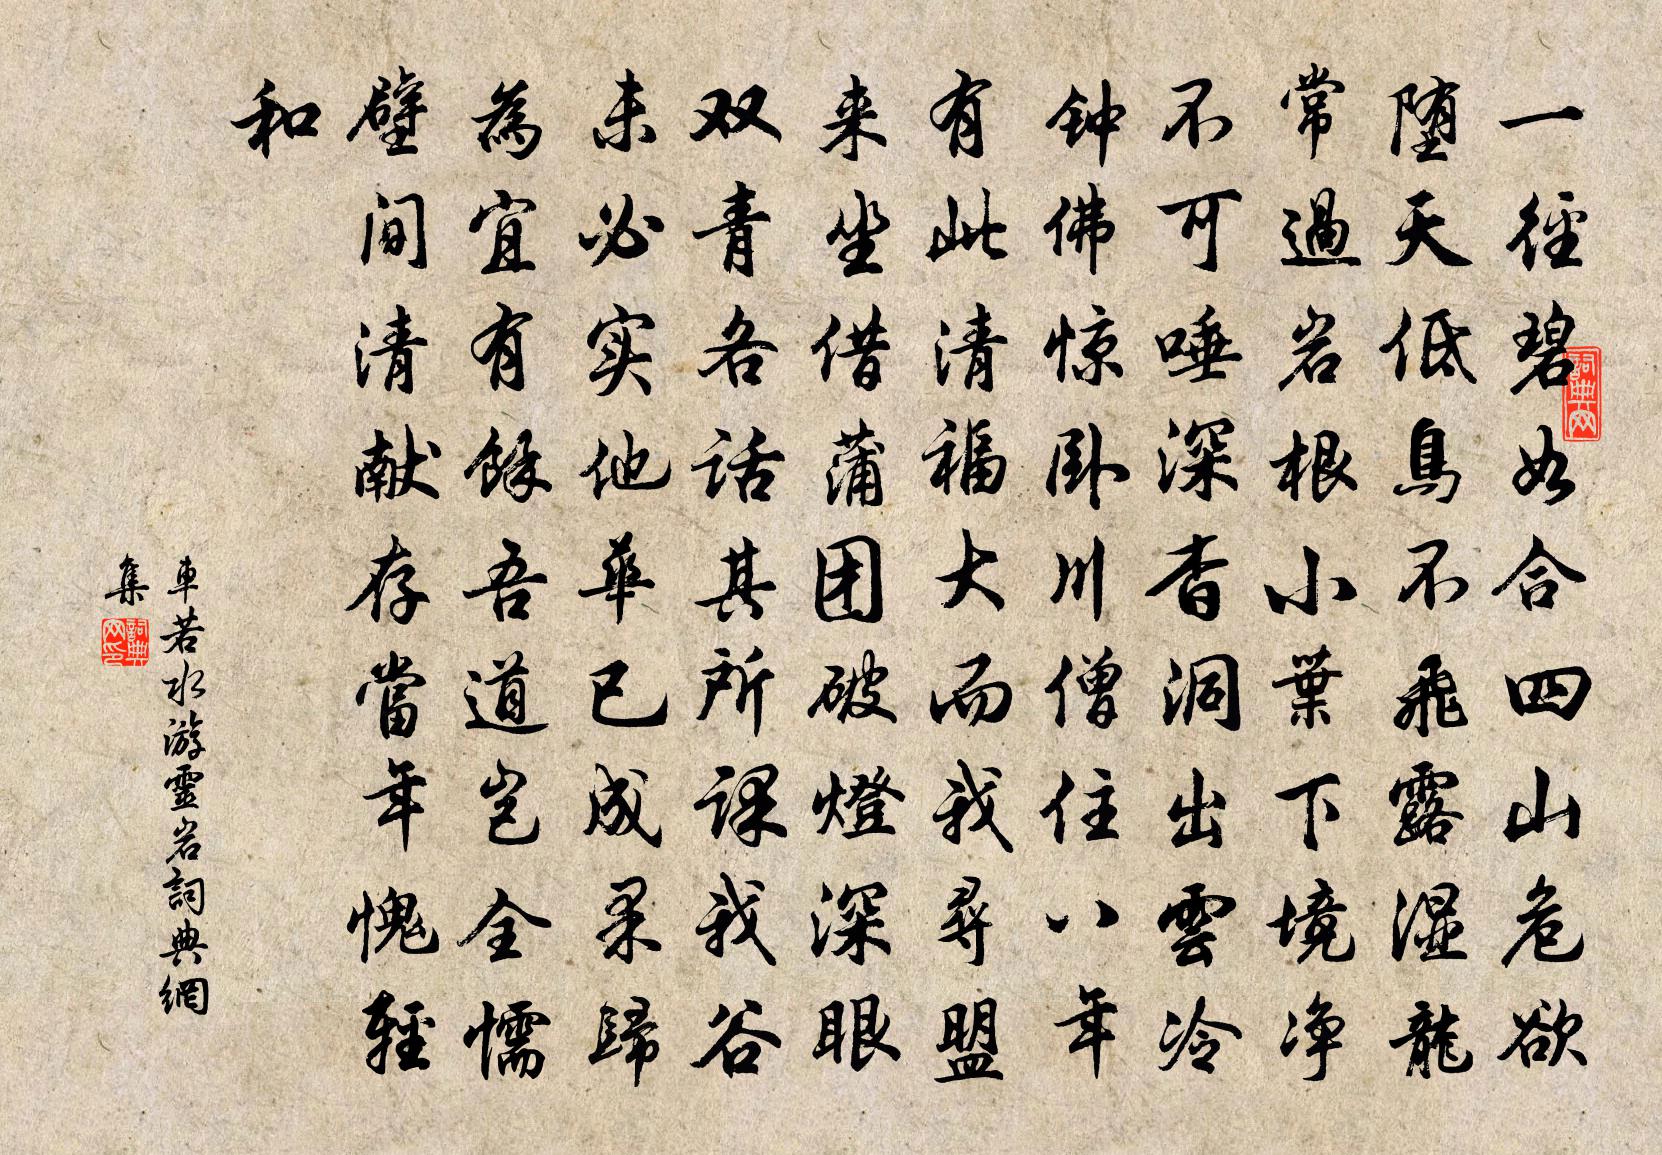 一徑碧如合四山危欲
堕天低鳥不飛露湿龍
常過岩根小葉下境净
不可唾深杳洞出雲冷
钟佛惊卧川僧住八年
有此清福大而我尋盟
来坐借蒲团破燈深眼
双青各话其所课我谷
未必实他華已成果歸
為宜有餘吾道岂全懦
壁间清献存當年愧輕
和
車若水游靈岩詞典網
集
詞典网
詞典网印